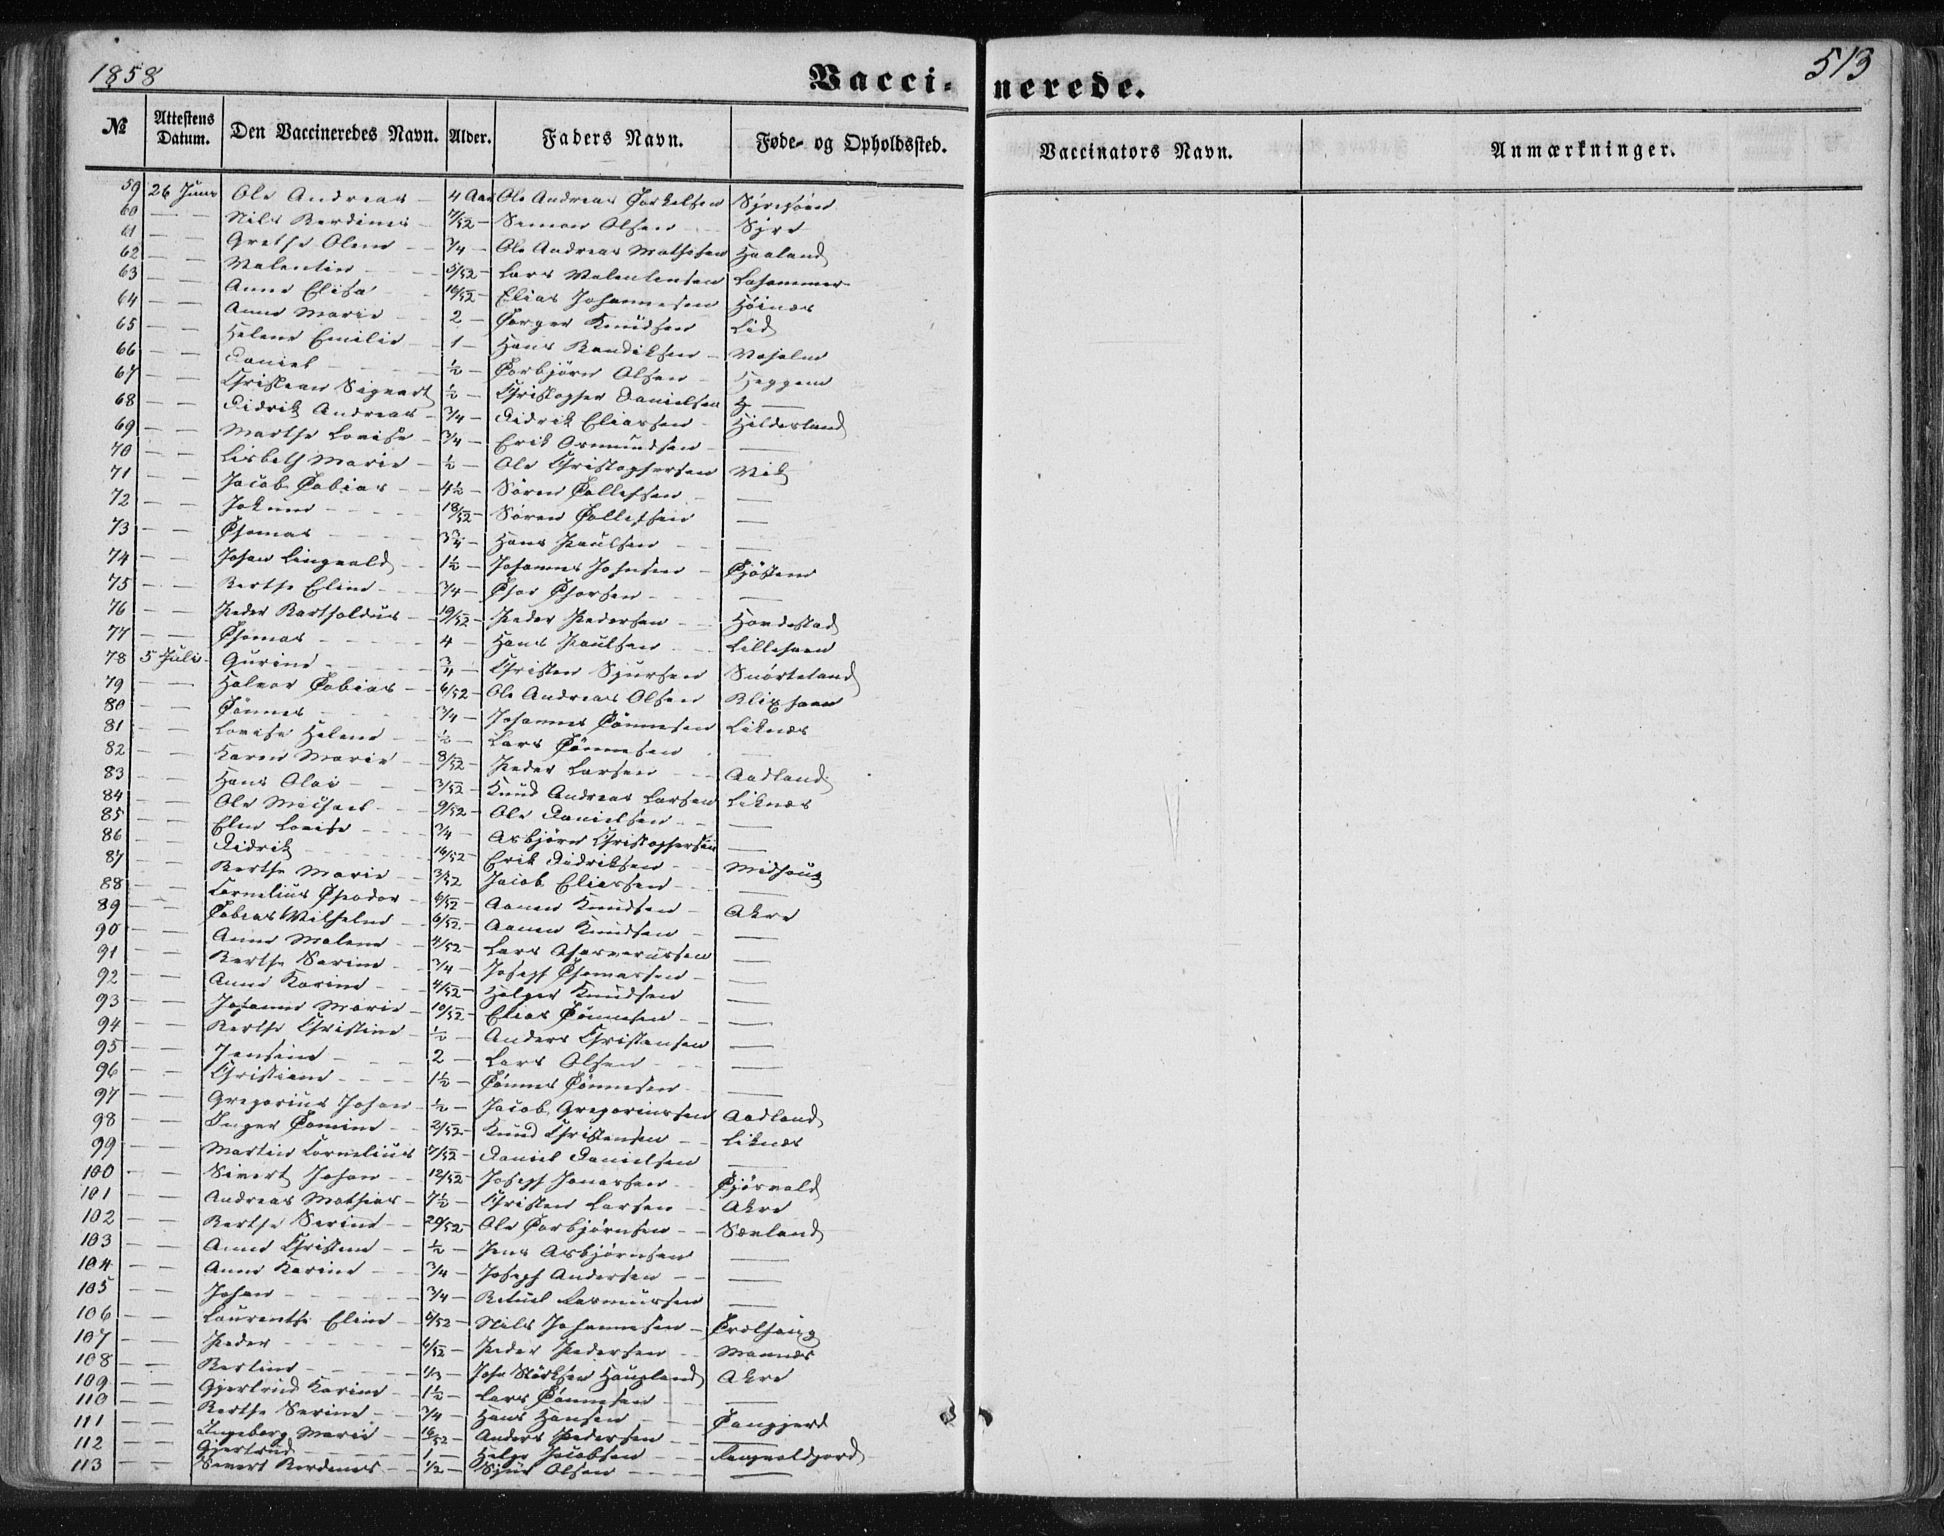 1858
513
Vaccinerede.
№ Attestens Datum. Den Vaccineredes Navn. Alder. Faders Navn. Føde- og Opholdssted. Vaccinators Navn. Anmærkninger.
59 26 Juni Ole Andreas — 4 Aar Ole Andreas Torkelsen
60 — — Nils Berdines 7/52 — Simon Olsen Syre
61 — — Grethe Oline 3/4 — Ole Andreas Mathisen Haaland
62 — — Valentin 5/52 — Lars Valentinsen
63 — — Anne Elisa 16/52 — Elias Johannesen Høinæs
64 — — Anne Marie 2 — Torger Knudsen Lid
65 — — Helene Emilie 1 — Hans Bendiksen
66 — — Daniel 1/2 — Torbjørn Olsen Heggem
67 — — Christian Sigvart 1/2 — Christopher Danielsen
68 — — Didrik Andreas 3/4 — Didrik Eliassen Hildesland
69 — — Marthe Lovise 3/4 — Erik Osmundsen —
70 — — Lisbeth Marie 1/2 — Ole Christophersen Vik
71 — — Jacob Tobias 4 1/2 — Søren Tollefsen —
72 — — 18/52 — Søren Tollefsen —
73 — — Thomas 3 3/4 — Hans Paulsen —
74 — — Johan Lingvald 1 1/2 — Johannes Johnsen Tjøstem
75 — — Berthe Eline 3/4 — Thor Thorsen —
76 — — Peder Bartholdus 19/52 — Peder Pedersen Hordestad
77 — — Thomas 4 — Hans Paulsen
78 5 Juli Gurine 3/4 — Christen Sjursen Snørteland
79 — — Halvor Tobias 6/52 — Ole Andreas Olsen
80 — — Tønnes 3/4 — Johannes Tønnesen Liknæs
81 — — Lovise Helene 1/2 — Lars Tønnesen —
82 — — Karen Marie 8/52 — Peder Larsen Aadland
83 — — Hans Olai 3/52 — Knud Andreas Larsen Liknæs
84 — — Ole Michael 9/52 — Ole Danielsen —
85 — — Elen Lovise 3/4 — Asbjørn Christophersen —
86 — — Didrik 16/52 — Erik Didriksen Midhaug
87 — — Berthe Marie 3/52 Jacob Eliassen —
88 — — Cornelius Theodor 6/52 — Aanen Knudsen Akre
89 — — Tobias Wilhelm 6/52 — Aanen Knudsen —
90 — — Anne Malene 4/52 — Lars Asserussen —
91 — — Berthe Serine 3/4 — Joseph Thomassen —
92 — — Anne Karine 4/52 — Holger Knudsen —
93 — — Johanne Marie 10/52 — Elias Tønnesen —
94 — — Berthe Christine 1/2 — Anders Christensen —
95 — — Jensine 2 — Lars Olsen —
96 — — Christiane 1 1/2 — Tønnes Tønnesen —
97 — — Gregorius Johan 1/2 — Jacob Gregoriussen Aadland
98 — — Inger Tomine 2/52 — Knud Christensen Liknæs
99 — — Martin Cornelius 7/52 — Daniel Danielsen —
100 — — Sivert Johan 12/52 — Joseph Jonassen
101 — — Andreas Mathias 7 1/2 — Christen Larsen Akre
102 — — Berthe Serine 20/52 — Ole Torbjørnsen Sævland
103 — — Anne Christine 1/2 — Jens Asbjørnsen —
104 — — Anne Karine 3/4 — Joseph Andersen —
105 — — Johan 3/4 — Rasmussen —
106 — — Laurentse Eline 5/52 — Nils Johannesen
107 — — Peder 6/52 — Peder Pedersen Mannæs
108 — — Bertine 1/3 — John Størksen Haugland Akre
109 — — Gjertrud Karine 1 1/2 — Lars Tønnesen —
110 — — Berthe Serine 3/4 — Hans Hansen
111 — — Ingeborg Marie 16/52 — Anders Pedersen —
112 — — Gjertrud 1 — Helge Jacobsen
113 — — Sivert Berdenes 1/2 — Sjur Olsen —